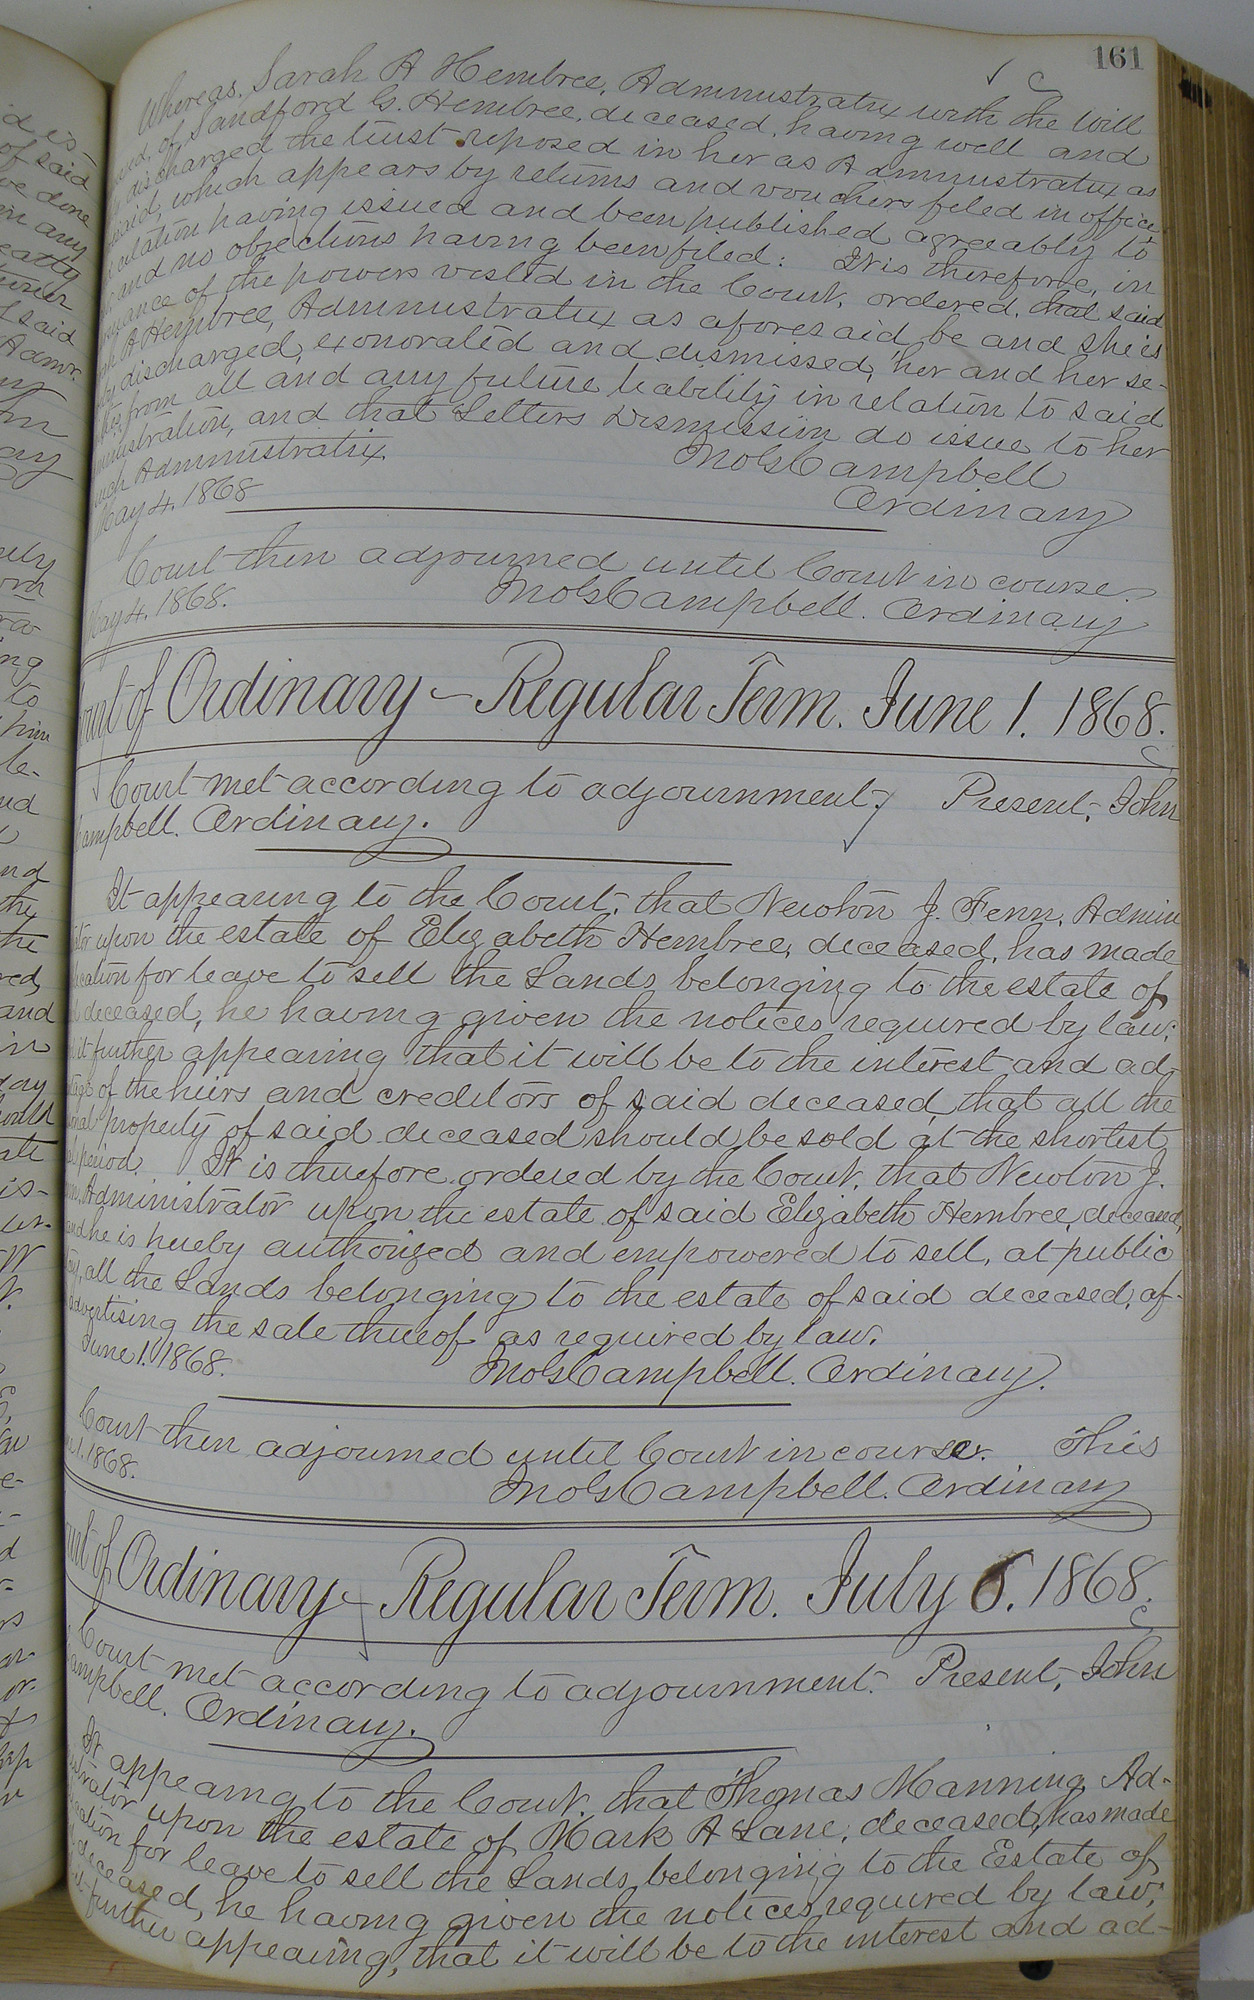 161
Whereas, Sarah A Hembree, Administratrix with the Will
of Sandford G. Hembree, deceased, having well and
discharged the trust reposed in her as Administratrix as
said, which appears by returns and vouchers filed in office,
having issued and been published agreeably to
and no objections having been filed: It is therefore, in
of the powers vested in the Court, ordered, that said
A Hembree, Administratrix as aforesaid be and she is
discharged, exonorated and dismissed, her and her se-
from all and any future liability in relation to said
and that Letters Dismission do issue to her
Administratrix
May 4. 1868 Jno S Campbell
Ordinary
Court then adjourned until Court in course.
May 4. 1868. Jno S Campbell. Ordinary
Court of Ordinary — Regular Term. June 1. 1868.
Court met according to adjournment; Present, John
Campbell. Ordinary.
It appearing to the Court, that Newton J. Fenn, Admin
upon the estate of Elizabeth Hembree, deceased, has made
for leave to sell the Lands belonging to the estate of
deceased, he having given the notices required by law;
it further appearing that it will be to the interest and ad-
of the heirs and creditors of said deceased, that all the
property of said deceased should be sold at the shortest
period. It is therefore ordered by the Court, that Newton J.
Administrator upon the estate of said Elizabeth Hembree, deceased,
and he is hereby authorized and empowered to sell, at public
all the Lands belonging to the estate of said deceased, af-
advertising the sale thereof as required by law.
June 1. 1868. Jno S Campbell. Ordinary.
Court then adjourned until Court in course. This
1. 1868.
Jno S Campbell. Ordinary
Court of Ordinary — Regular Term. July 6. 1868.
Court met according to adjournment. Present, John
Campbell. Ordinary.
It appearing to the Court, that Thomas Manning Ad-
upon the estate of Mark A Lane, deceased, has made
for leave to sell the Lands belonging to the Estate of
deceased, he having given the notices required by law;
further appearing, that it will be to the interest and ad-